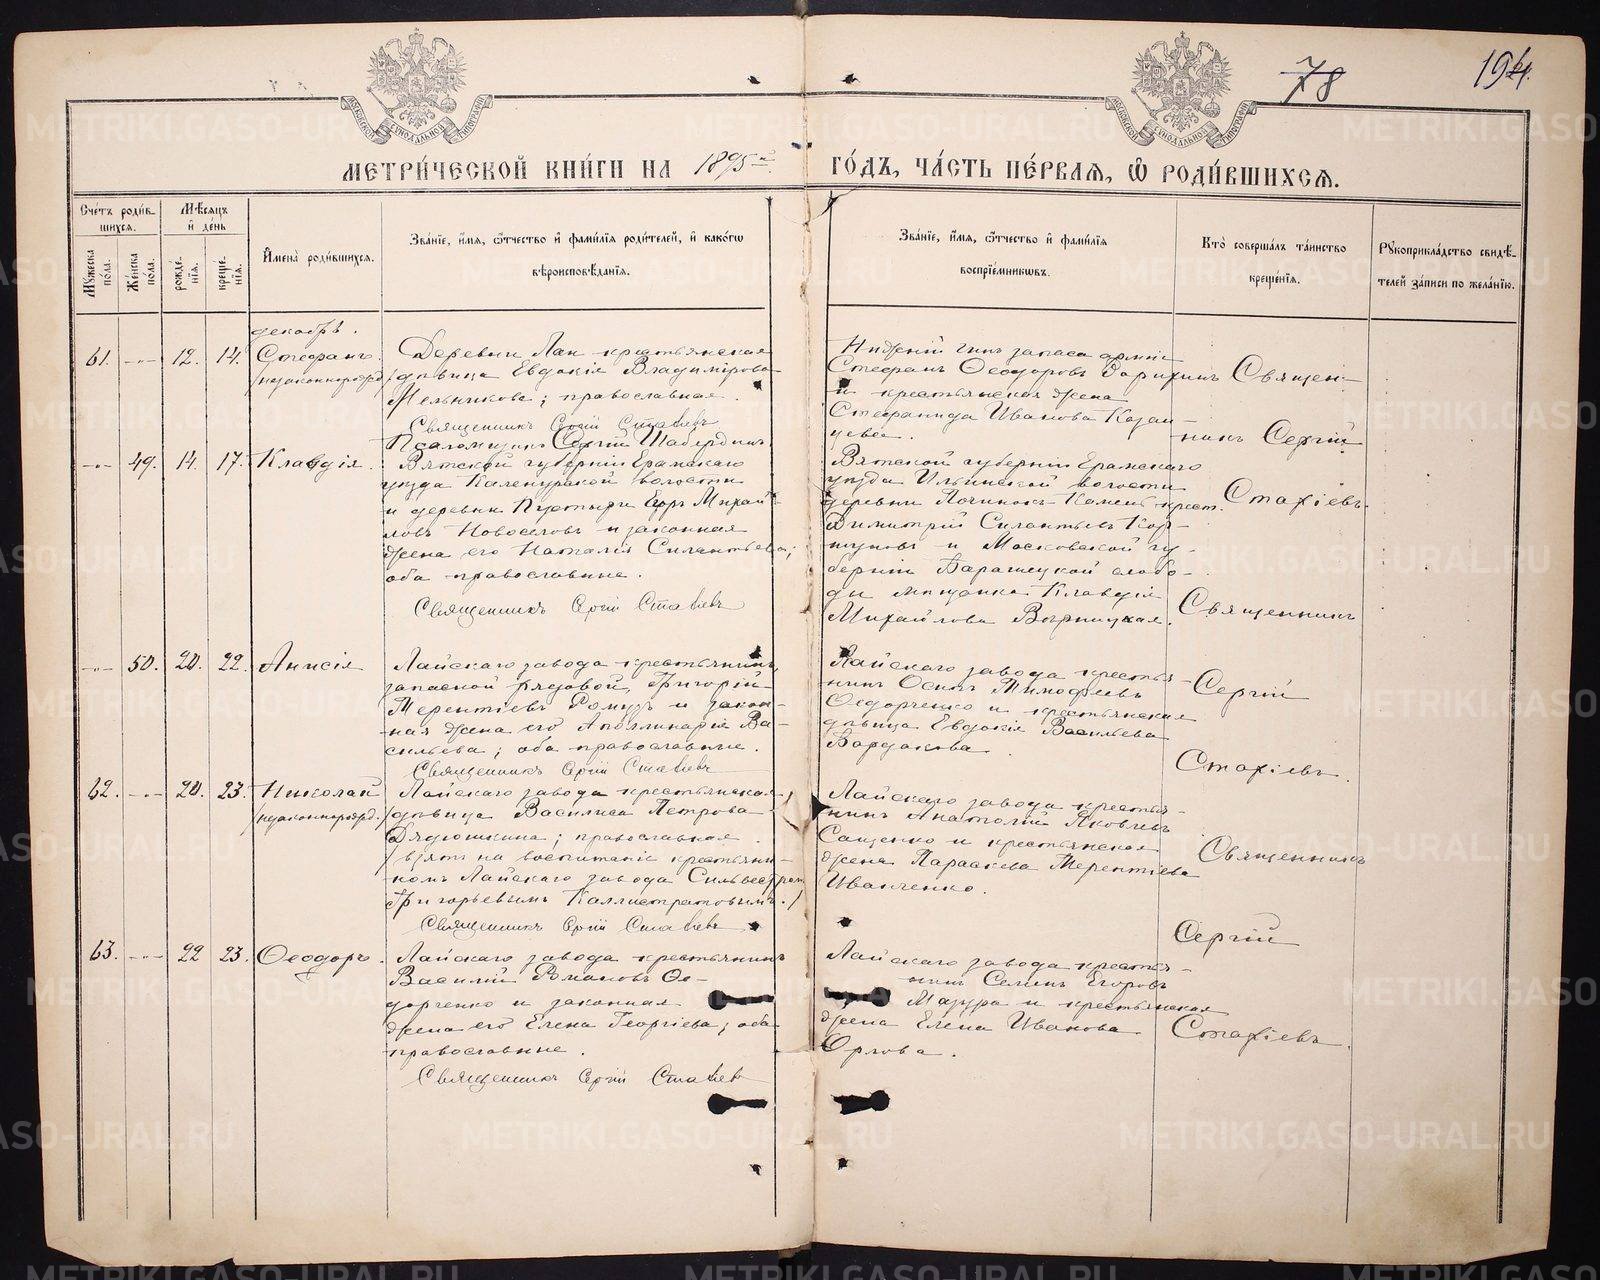 78
194.
МЕТРИ́ЧЕСКОЙ КНИ́ГИ НА 1895й ГО́ДЪ, ЧА́СТЬ ПЕ́РВАѦ, Ѡ҆ РОДИ́ВШИХСѦ.
Сче́тъ роди́вшихсѧ.
Мꙋ́жеска по́ла.
Же́нска по́ла.
Мѣ́сѧцъ и҆ де́нь
рожде́нїѧ.
креще́нїѧ.
И҆мена̀ роди́вшихсѧ.
Зва́нїе, и҆́мѧ, ѻ҆́тчество и҆ фами́лїѧ роди́телей, и҆ како́гѡ
вѣроисповѣ́данїѧ.
Зва́нїе, и҆́мѧ, ѻ҆́тчество и҆ фами́лїѧ
воспрїе́мникѡвъ.
Кто̀ соверша́лъ та́инство
креще́нїѧ.
Рꙋкоприкла́дство свидѣ́-
телей за́писи по жела́нїю.
декабрь.
61. -"- 12. 14. Стефанъ
/незаконнорожд/
Деревни Лаи крестьянская
дѣвица Евдокія Владимірова
Мельникова; православная.
Священникъ Сергій Стахіевъ
Псаломщикъ Сергій Шабердинъ
Нижній чинъ запаса арміи
Стефанъ Ѳеодоровъ
и крестьянская жена
Стефанида Иванова Казан-
цева.
Священ-
никъ Сергій
Стахіевъ.
-"- 49. 14. 17. Клавдія.
Вятской губерніи Еранскаго
уѣзда волости
и деревни Пустыри Егоръ Михай-
ловъ Новоселовъ и законная
жена его Наталія Силантьева;
оба православные.
Священникъ Сергій Стахіевъ
Вятской губерніи Еранскаго
уѣзда Ильинской волости
деревни Починокъ крест.
Димитрій Силантьевъ Кор-
шуновъ и Московской гу-
берніи слобо-
ды мѣщанка Клавдія
Михайлова
Священникъ
Сергій
Стахіевъ.
-"- 50. 20. 22. Анисія
Лайскаго завода крестьянинъ
запасной рядовой, Григорій
Терентіевъ и закон-
ная жена его Аполлинарія Ва-
сильева; оба православные.
Священникъ Сергій Стахіевъ
Лайскаго завода крестья-
нинъ Осипъ Тимофеевъ
Ѳедорченко и крестьянская
дѣвица Евдокія Васильева
Бардакова
62. -"- 20. 23. Николай
/незаконнорожд./
Лайскаго завода крестьянская
дѣвица Василиса Петрова
Дядюшкина; православная.
/взятъ на воспитаніе крестьяни-
номъ Лайскаго завода Сильвестромъ
Григорьевымъ Каллистратовымъ./
Священникъ Сергій Стахіевъ
Лайскаго завода крестья-
нинъ Анатолій Яковлевъ
Сащенко и крестьянская
жена Параскева Терентіева
Иванченко.
Священникъ
Сергій
Стахіевъ.
63. -"- 22 23. Ѳеодоръ.
Лайскаго завода крестьянинъ
Василій Романовъ Ѳе-
дорченко и законная
жена его Елена Георгіева; оба
православные.
Священникъ Сергій Стахіевъ
Лайскаго завода крестья-
нинъ Егоровъ
Мазура и крестьянская
жена Елена Иванова
Орлова.
METRIKI.GASO-URAL.RU